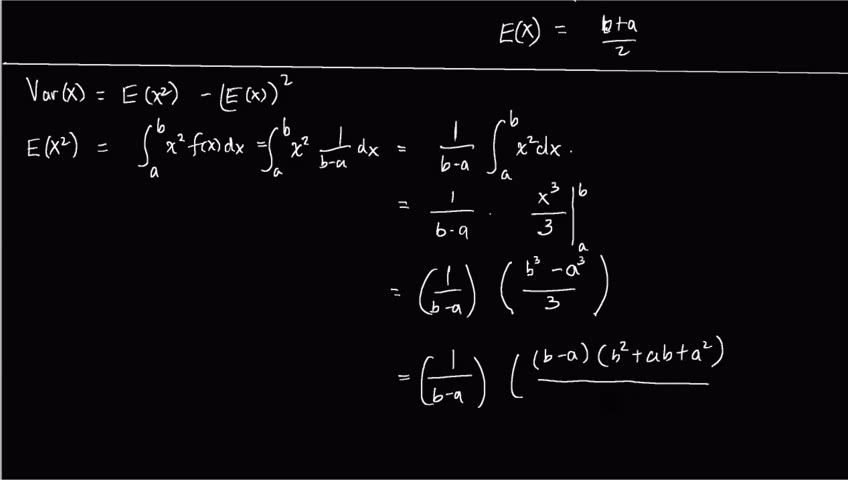 E(X) = b+a/2
Var(x) = E(x²) - (E(x))²
E(X²) = ∫ₐᵇ x² f(x) dx = ∫ₐᵇ x² 1/b-a dx = 1/b-a ∫ₐᵇ x² dx.
= 1/b-a · x³/3 |ₐᵇ
= (1/b-a) (b³-a³/3)
= (1/b-a) ((b-a)(b²+ab+a²)